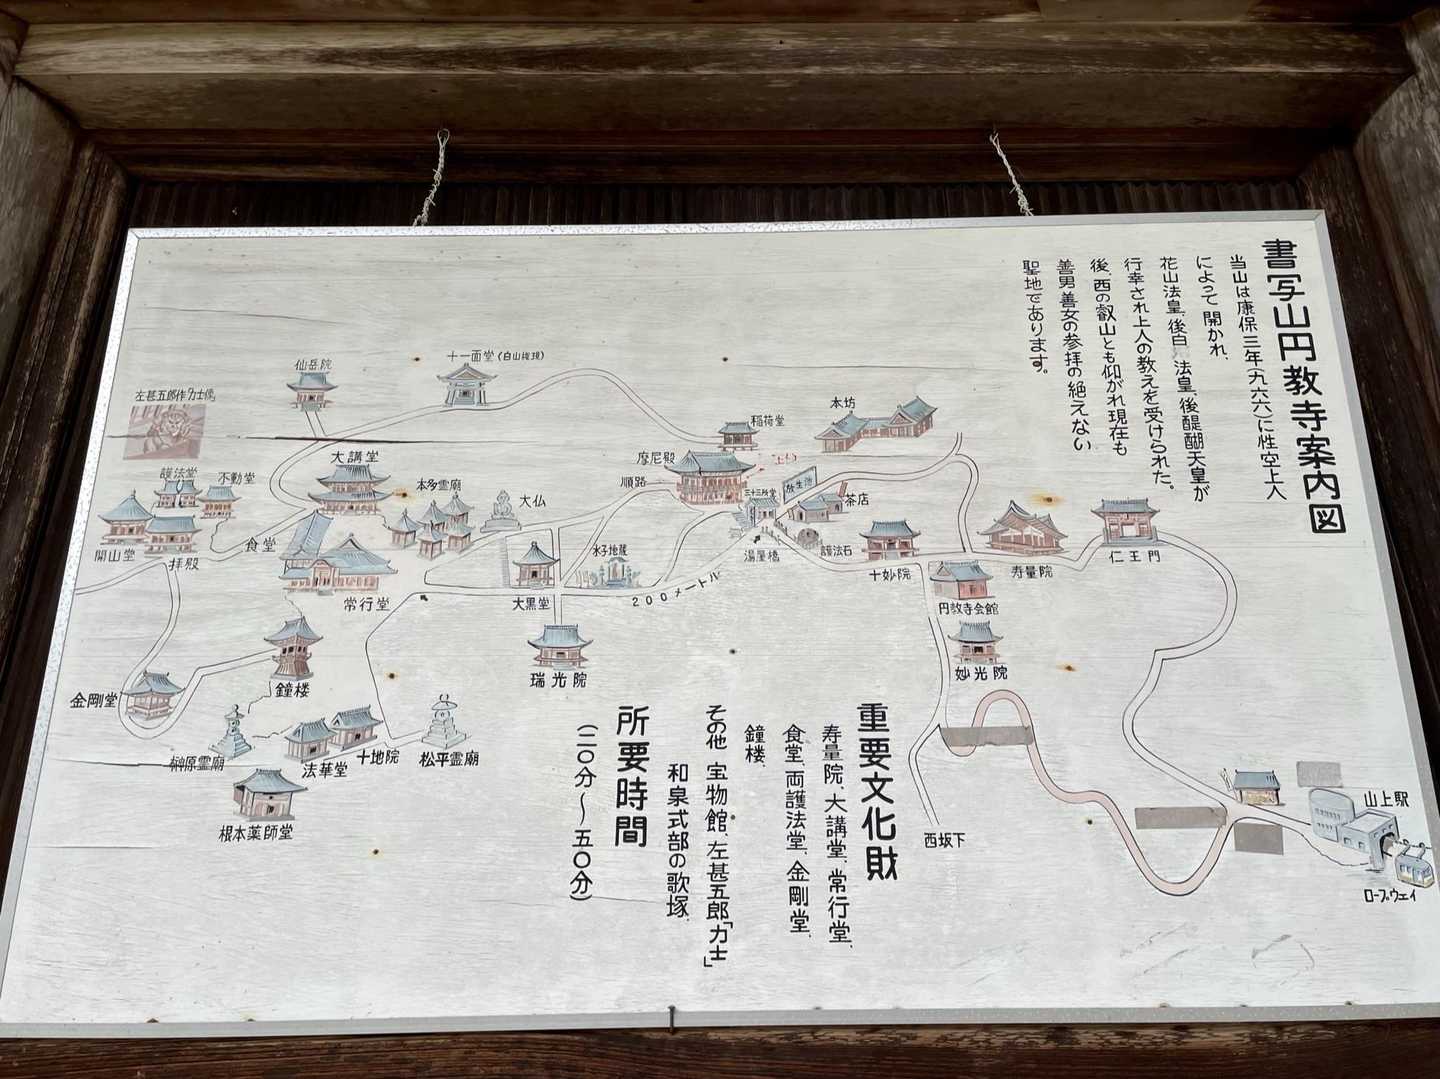 書写山円教寺案内図
当山は康保三年(九六六)に性空上人
によって開かれ、
花山法皇、後白 法皇、後醍醐天皇が
行幸され上人の教えを受けられた。
後、西の叡山とも仰がれ現在も
善男善女の参拝の絶えない
聖地であります。
仙岳院
十一面堂(白山権現)
左甚五郎作力士像
稲荷堂
本坊
大講堂
摩尼殿
護法堂
不動堂
順路
本多霊廟
大仏
三十三所堂
放生池
茶店
開山堂
拝殿
食堂
常行堂
大黒堂
水子地蔵
200メートル
湯屋橋
護法石
十妙院
寿量院
仁王門
円教寺会館
妙光院
瑞光院
鐘楼
金剛堂
榊原霊廟
法華堂
十地院
松平霊廟
根本薬師堂
西坂下
山上駅
ロープウェイ
重要文化財
寿量院、大講堂、常行堂、
食堂、両護法堂、金剛堂、
鐘楼、
その他 宝物館、左甚五郎「力士」
和泉式部の歌塚
所要時間
(二〇分〜五〇分)